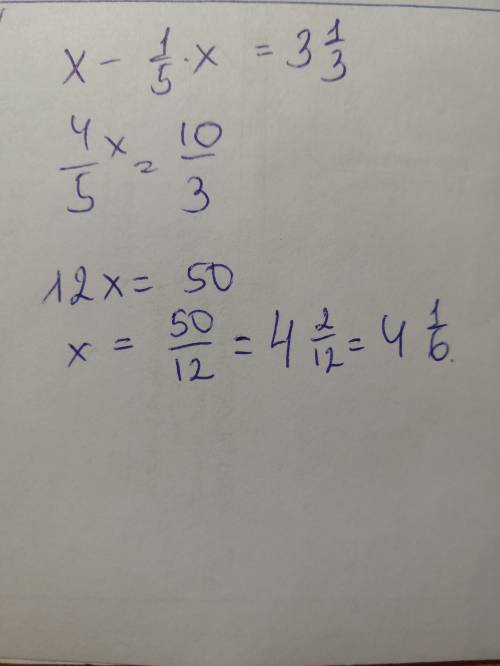 x - 1/5 · x = 3 1/3
4/5 x = 10/3
12x = 50
x = 50/12 = 4 2/12 = 4 1/6.